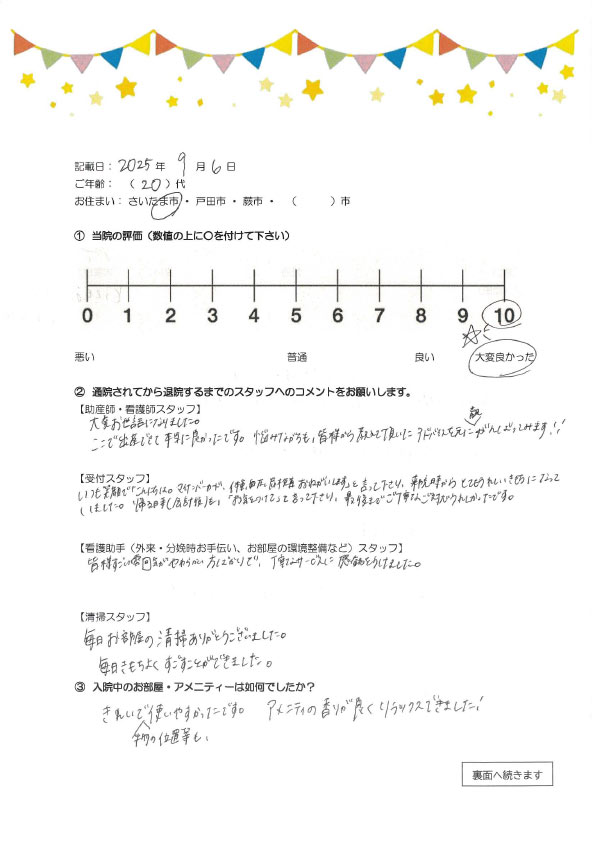 記載日： 2025 年 9 月 6 日
ご年齢： （ 20 ）代
お住まい： さいたま市 ・ 戸田市 ・ 蕨市 ・ （ ）市
① 当院の評価（数値の上に〇を付けて下さい）
0 1 2 3 4 5 6 7 8 9 10
悪い 普通 良い 大変良かった
② 通院されてから退院するまでのスタッフへのコメントをお願いします。
【助産師・看護師スタッフ】
大変お世話になりました。
ここで出産できて本当に良かったです。悩みながらも、皆様から教えて頂いたアドバイスを元に がんばってみます！！
【受付スタッフ】
いつも笑顔で「こんにちは。マイナンバーカード、 おねがいします」と言って下さり、来院時から とてもうれしいきもちになって
いました。帰る時(お会計後)も、「お気をつけて」って言って下さり、最後までご丁寧なご対応うれしかったです。
【看護助手（外来・分娩時お手伝い、お部屋の環境整備など）スタッフ】
皆様すごい雰囲気がやわらかい方ばかりで、丁寧なサービスに感動をうけました。
【清掃スタッフ】
毎日お部屋の清掃ありがとうございました。
毎日きもちよくすごすことができました。
③ 入院中のお部屋・アメニティーは如何でしたか？
きれいで使いやすかったです。 アメニティの香りが良くリラックスできました！
物の位置等も、
裏面へ続きます